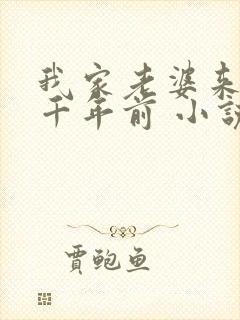 我家老婆来
千年前 小说
贾鲍鱼